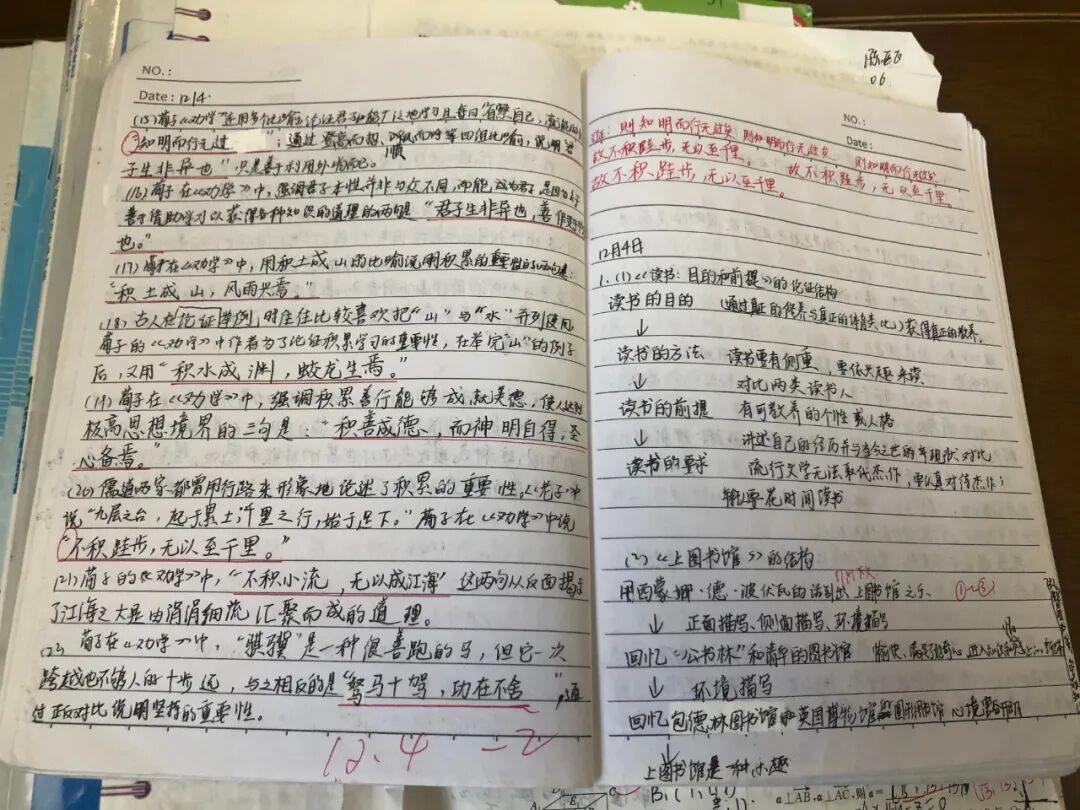 NO.:
Date: 12/4.
(15) 荀子《劝学》运用多个比喻论证君子如能广泛地学习且每日省察自己,就能
知明而行无过"; 通过登高而招、顺风而呼等四组比喻,说明"君
子生非异也" 只是善于利用外物而已。
(16) 荀子在《劝学》中,强调君子本性并非与众不同,而能成为君子,是因为
善于借助学习以获得各种知识的道理的两句是 "君子生非异也,善假于物
也。"
(17) 荀子在《劝学》中,用积土成山的比喻说明积累的重要性的两句是:
"积土成山,风雨兴焉。"
(18) 古人在论证举例,时往往比较喜欢把"山"与"水"并列使用,
荀子的《劝学》中作者为了论证积累学习的重要性,在举完"山"的例子
后,又用"积水成渊,蛟龙生焉。
(19) 荀子在《劝学》中,强调积累善行能够成就美德,使人达到
极高思想境界的三句是:"积善成德、而神明自得,圣
心备焉。"
(20) 儒道两家都曾用行路来形象地论述了积累的重要性,《老子》中
说"九层之台,起于累土;千里之行,始于足下。"荀子在《劝学》中说
"不积跬步,无以至千里。"
(21) 荀子的《劝学》中,"不积小流,无以成江海"这两句从反面揭示
了江海之大是由涓涓细流汇聚而成的道理。
(22) 荀子在《劝学》中,"骐骥"是一种很善跑的马,但它一次
跨越也不够人的十步远,与之相反的是"驽马十驾,功在不舍",通
过正反对比说明坚持的重要性。
12.4 -2
06
NO.:
Date:
则知明而行无过矣 则知明而行无过矣 则知明而行无过矣
故不积跬步,无以至千里。 故不积跬步,无以至千里。
故不积跬步,无以至千里。
12月4日
1. (1)《读书:目的和前提》的论证结构
读书的目的 (通过真正的修养与真正的体育类比)获得真正的教养。
↓
读书的方法 读书要有侧重、要依兴趣来读、
↓ 对比两类读书人
读书的前提 有可教养的个性或人格
↓ 讲述自己的经历并与当今之世的年轻人对比
读书的要求 流行文学无法取代杰作,要认真对待杰作;
要花时间读书
(2)《上图书馆》的结构
用西蒙娜·德·波伏瓦的话引出上图书馆之乐 ①~③
↓ 正面描写、侧面描写、环境描写
回忆"公书林"和清华的图书馆
↓ 环境描写
回忆包德林图书馆和英国博物馆圆形书馆
↓
上图书馆是一种乐趣